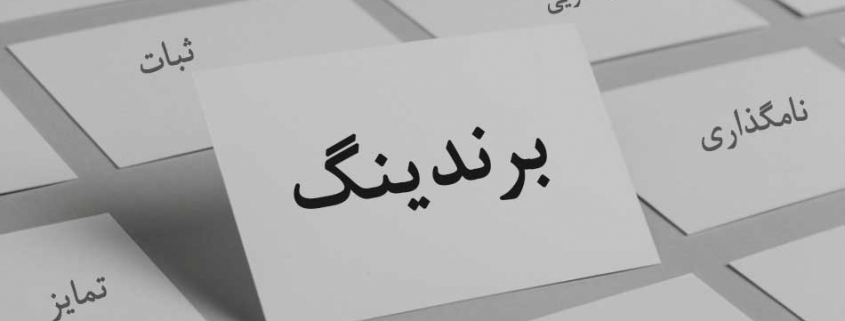 ثبات
برندینگ
نامگذاری
تمایز